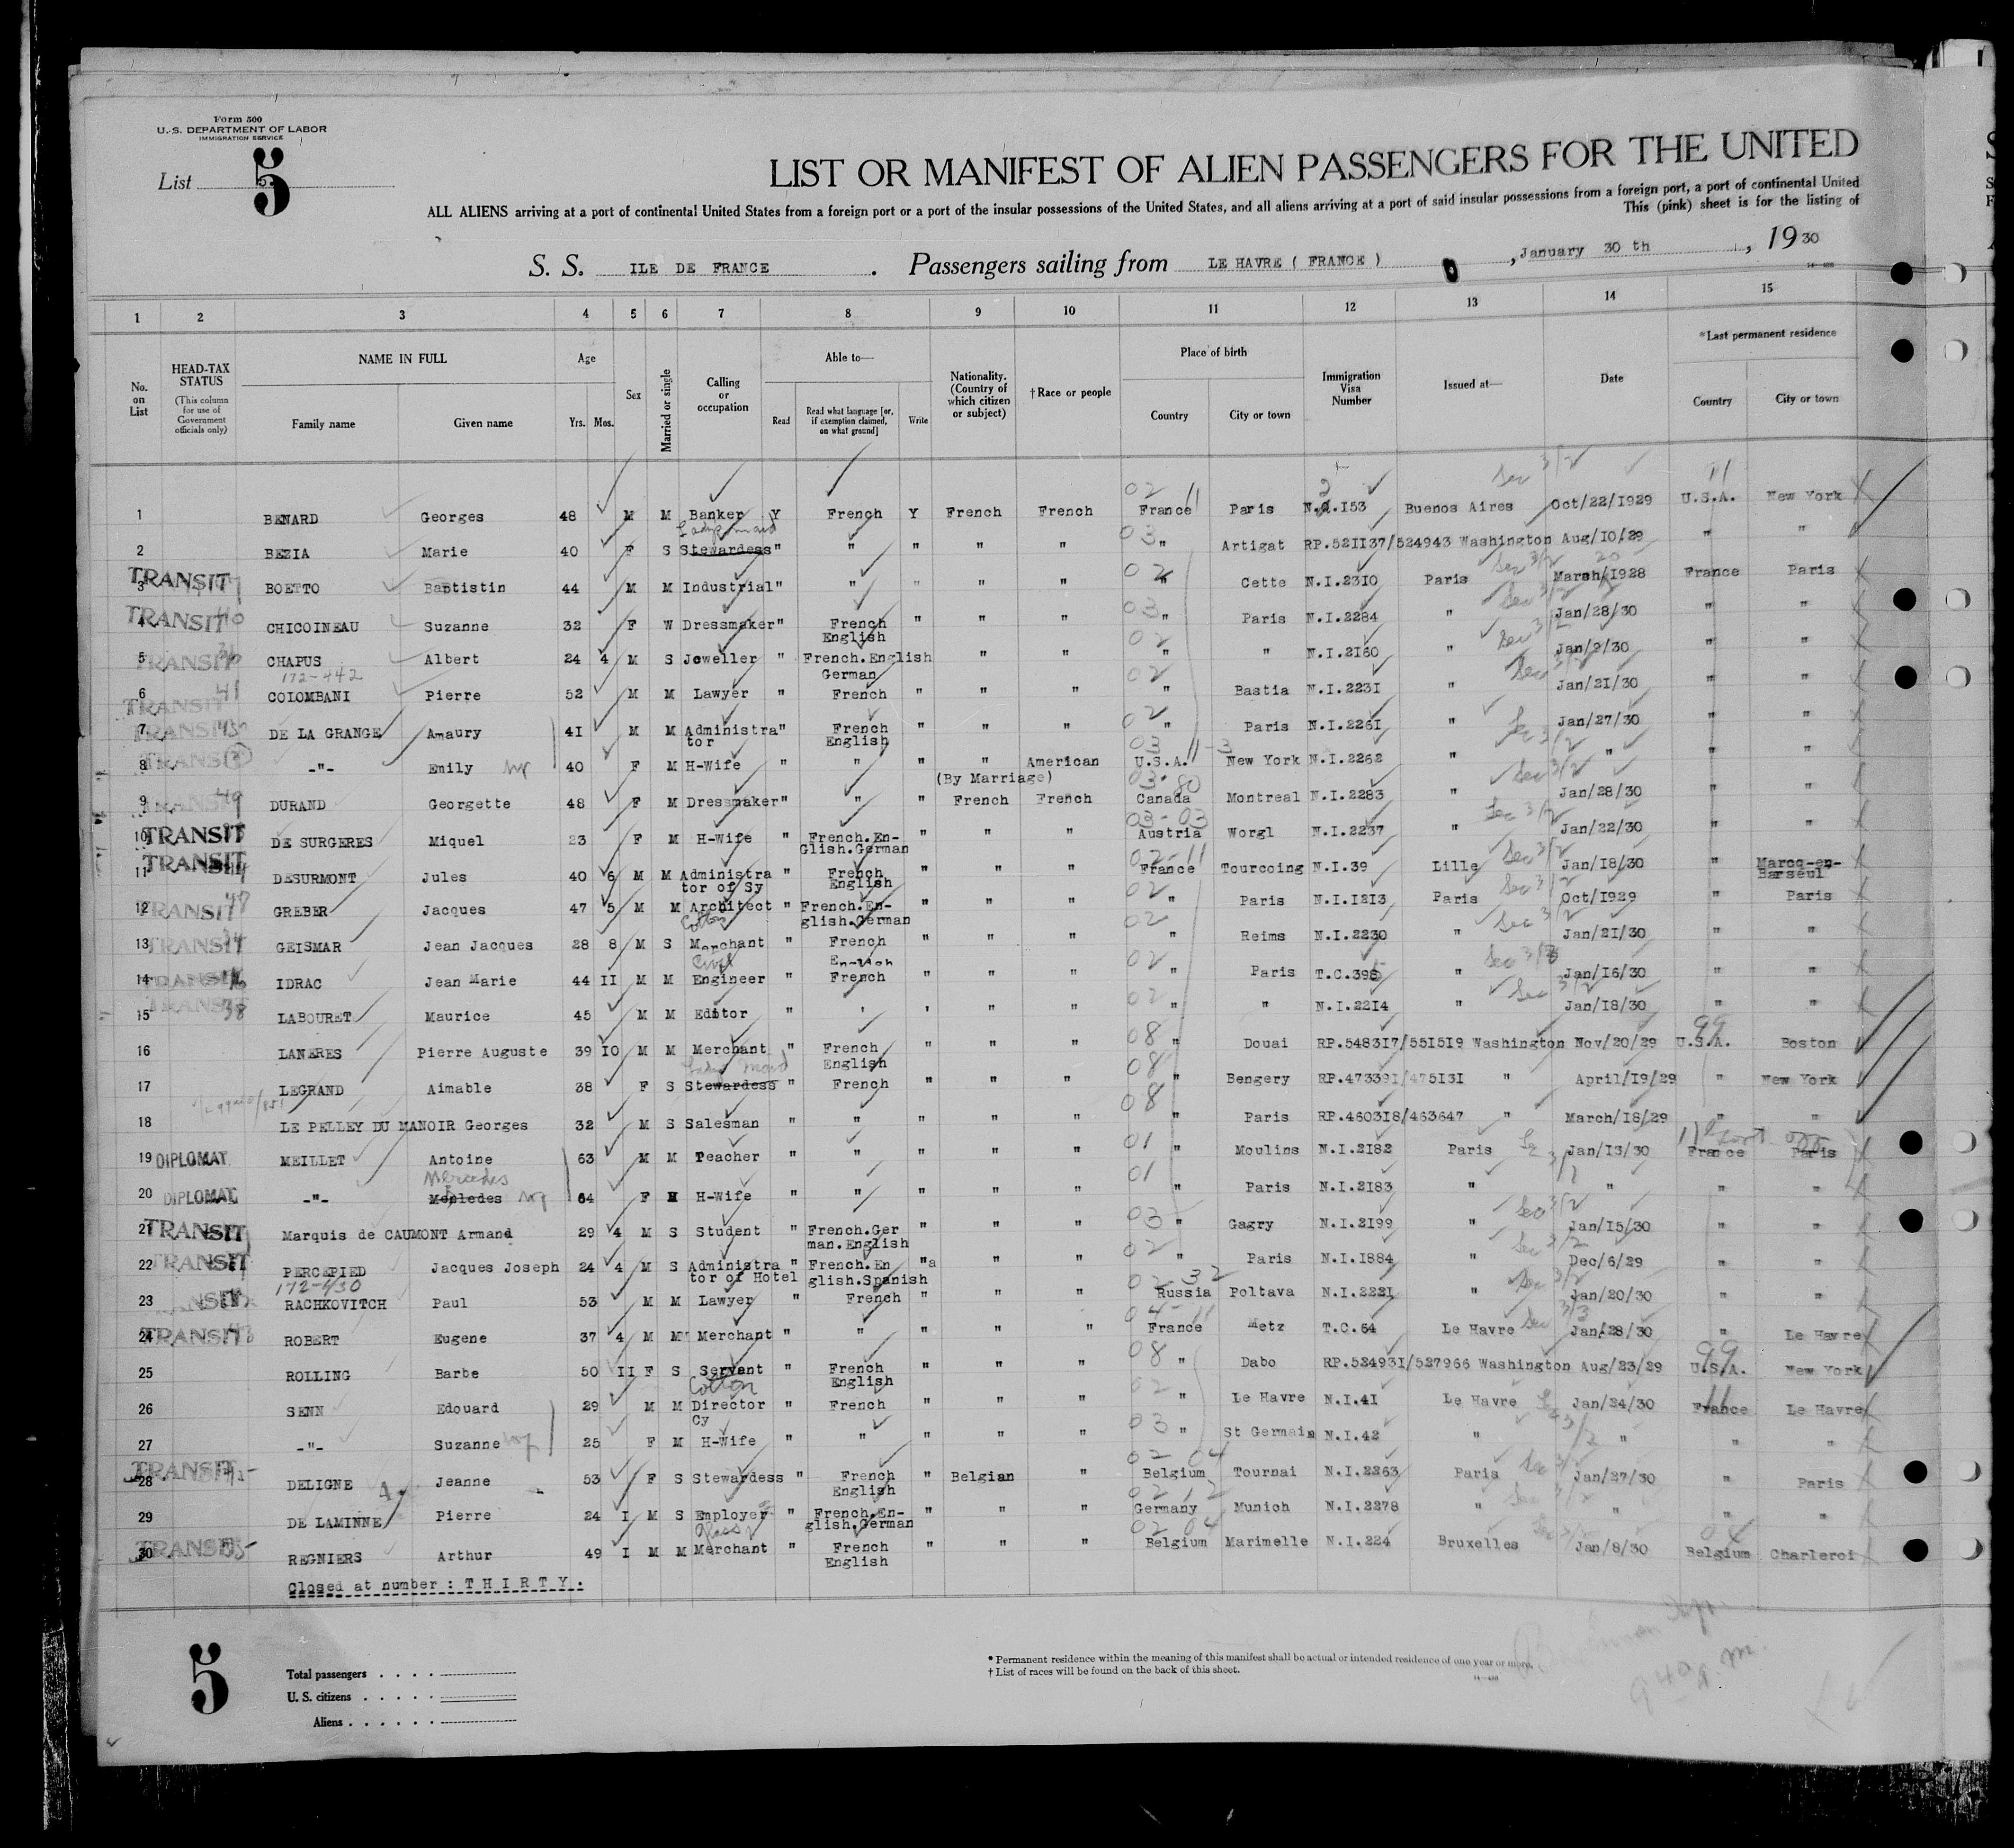 Form 500
U.S. DEPARTMENT OF LABOR
IMMIGRATION SERVICE
List 5
LIST OR MANIFEST OF ALIEN PASSENGERS FOR THE UNITED
ALL ALIENS arriving at a port of continental United States from a foreign port or a port of the insular possessions of the United States, and all aliens arriving at a port of said insular possessions from a foreign port, a port of continental United
This (pink) sheet is for the listing of
S. S. ILE DE FRANCE . Passengers sailing from LE HAVRE ( FRANCE ) , January 30 th , 1930
1 2 3 4 5 6 7 8 9 10 11 12 13 14 15
No. on List
HEAD-TAX STATUS (This column for use of Government officials only)
NAME IN FULL Family name Given name
Age Yrs. Mos.
Sex
Married or single
Calling or occupation
Able to— Read Read what language [or, if exemption claimed, on what ground] Write
Nationality. (Country of which citizen or subject)
† Race or people
Place of birth Country City or town
Immigration Visa Number
Issued at—
Date
*Last permanent residence Country City or town
1 BENARD Georges 48 M M Banker Y French Y French French France Paris N.I.153 Buenos Aires Oct/22/1929 U.S.A. New York
2 BEZIA Marie 40 F S Stewardess " " " " " " Artigat RP.521137/524943 Washington Aug/10/29 " "
TRANSIT 3 BOETTO Baptistin 44 M M Industrial " " " " " " Cette N.I.2310 Paris March/1928 France Paris
TRANSIT 4 CHICOINEAU Suzanne 32 F W Dressmaker " French English " " " " Paris N.I.2284 " Jan/28/30 " "
TRANSIT 5 CHAPUS Albert 24 4 M S Jeweller " French.English German " " " " N.I.2160 " Jan/9/30 " "
172-442
TRANSIT 6 COLOMBANI Pierre 52 M M Lawyer " French " " " " Bastia N.I.2231 " Jan/21/30 " "
TRANSIT 7 DE LA GRANGE Amaury 41 M M Administrator " French English " " " " Paris N.I.2261 " Jan/27/30 " "
TRANSIT 8 -"- Emily 40 F M H-Wife " " " " American U.S.A. New York N.I.2262 " " " "
(By Marriage)
TRANSIT 9 DURAND Georgette 48 F M Dressmaker " " " French French Canada Montreal N.I.2283 " Jan/28/30 " "
TRANSIT 10 DE SURGERES Miquel 23 F M H-Wife " French.English.German " " " Austria Worgl N.I.2237 " Jan/22/30 " "
TRANSIT 11 DESURMONT Jules 40 6 M M Administrator of Sy " French English " " " France Tourcoing N.I.39 Lille Jan/18/30 " Marcq-en-Barseul
TRANSIT 12 GREBER Jacques 47 5 M M Architect " French.English.German " " " " Paris N.I.1213 Paris Oct/1929 " Paris
TRANSIT 13 GEISMAR Jean Jacques 28 8 M S Cotton Merchant " French English " " " " Reims N.I.2230 " Jan/21/30 " "
TRANSIT 14 IDRAC Jean Marie 44 II M M Civil Engineer " French " " " " Paris T.C.395 " Jan/16/30 " "
TRANSIT 15 LABOURET Maurice 45 M M Editor " ' ' " " " " N.I.2214 " Jan/18/30 " "
16 LANERES Pierre Auguste 39 10 M M Merchant " French English " " " " Douai RP.548317/551519 Washington Nov/20/29 U.S.A. Boston
17 LEGRAND Aimable 38 F S Stewardess " French " " " " Bengery RP.473391/475131 " April/19/29 " New York
18 LE PELLEY DU MANOIR Georges 32 M S Salesman " " " " " " Paris RP.460318/463647 " March/18/29 " "
19 DIPLOMAT MEILLET Antoine 63 M M Teacher " " " " " " Moulins N.I.2182 Paris Jan/13/30 France Paris
Mercedes
20 DIPLOMAT -"- 64 F M H-Wife " " " " " Paris N.I.2183 " " " "
TRANSIT 21 Marquis de CAUMONT Armand 29 4 M S Student " French.German.English " " " " Gagry N.I.2199 " Jan/15/30 " "
TRANSIT 22 PERCEPIED Jacques Joseph 24 4 M S Administrator of Hotel " French.English.Spanish "a " " " Paris N.I.1884 " Dec/6/29 " "
172-430
TRANSIT 23 RACHKOVITCH Paul 53 M M Lawyer " French " " " Russia Poltava N.I.2221 " Jan/20/30 " "
TRANSIT 24 ROBERT Eugene 37 4 M M Merchant " " " " " France Metz T.C.64 Le Havre Jan/28/30 " Le Havre
25 ROLLING Barbe 50 II F S Servant " French English " " " " Dabo RP.524931/527966 Washington Aug/23/29 U.S.A. New York
26 SENN Edouard 29 M M Cotton Director Cy " French " " " " Le Havre N.I.41 Le Havre Jan/24/30 France Le Havre
27 -"- Suzanne 25 F M H-Wife " " " " " " St Germain N.I.42 " " " "
TRANSIT 28 DELIGNE Jeanne 53 F S Stewardess " French English " Belgian " Belgium Tournai N.I.2263 Paris Jan/27/30 " Paris
29 DE LAMINNE Pierre 24 I M S Employer " French.English.German " " " Germany Munich N.I.2278 " " " "
TRANSIT 30 REGNIERS Arthur 49 I M M Glass Merchant " French English " " " Belgium Marimelle N.I.224 Bruxelles Jan/8/30 Belgium Charleroi
Closed at number : T H I R T Y .
5
Total passengers . . . .
U. S. citizens . . . . .
Aliens . . . . . .
* Permanent residence within the meaning of this manifest shall be actual or intended residence of one year or more.
† List of races will be found on the back of this sheet.